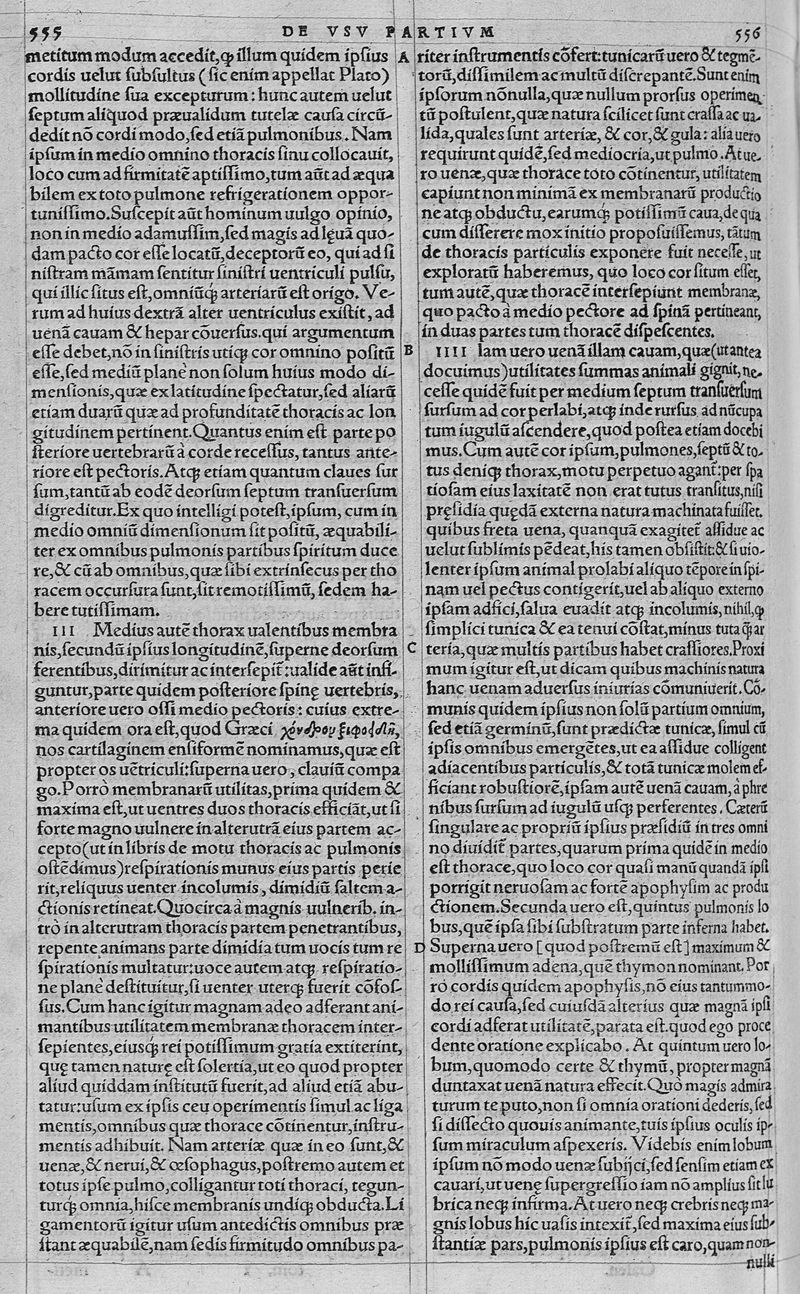 555 DE VSV PARTIVM 556
metitum modum accedit, ꝙ illum quidem ipſius
cordis uelut ſubſultus (ſic enim appellat Plato)
mollitudine ſua excepturum: hunc autem uelut
ſeptum aliquod præualidum tutelæ cauſa circū-
dedit nō cordi modo, ſed etiā pulmonibus. Nam
ipſum in medio omnino thoracis ſinu collocauit,
loco cum ad firmitatē aptiſſimo, tum aūt ad æqua
bilem ex toto pulmone refrigerationem oppor-
tuniſſimo. Suſcepit aūt hominum uulgo opinio,
non in medio adamuſſim, ſed magis ad lęuā quo-
dam pacto cor eſſe locatū, deceptorū eo, qui ad ſi
niſtram māmam ſentitur ſiniſtri uentriculi pulſu,
qui illic ſitus eſt, omniūq́; arteriarū eſt origo. Ve-
rum ad huius dextrā alter uentriculus exiſtit, ad
uenā cauam & hepar cōuerſus. qui argumentum
eſſe debet, nō in ſiniſtris utiq; cor omnino poſitū
eſſe, ſed mediū planè non ſolum huius modo di-
menſionis, quæ ex latitudine ſpectatur, ſed aliarū
etiam duarū quæ ad profunditatē thoracis ac lon
gitudinem pertinent. Quantus enim eſt parte po
ſteriore uertebrarū à corde receſſus, tantus ante-
riore eſt pectoris. Atq; etiam quantum claues ſur
ſum, tantū ab eodē deorſum ſeptum tranſuerſum
digreditur. Ex quo intelligi poteſt, ipſum, cum in
medio omniū dimenſionum ſit poſitū, æquabili-
ter ex omnibus pulmonis partibus ſpiritum duce
re, & cū ab omnibus, quæ ſibi extrinſecus per tho
racem occurſura ſunt, ſit remotiſſimū, ſedem ha-
bere tutiſſimam.
III Medius autē thorax ualentibus membra
nis, ſecundū ipſius longitudinē, ſuperne deorſum
ferentibus, dirimitur ac interſepit̄: ualide aūt infi-
guntur, parte quidem poſteriore ſpinę uertebris,
anteriore uero oſſi medio pectoris: cuius extre-
ma quidem ora eſt, quod Græci χόνδρου ξιφοειδῆ,
nos cartilaginem enſiformē nominamus, quæ eſt
propter os uētriculi: ſuperna uero, clauiū compa
go. Porrò membranarū utilitas, prima quidem &
maxima eſt, ut uentres duos thoracis efficiāt, ut ſi
forte magno uulnere in alterutrā eius partem ac-
cepto (ut in libris de motu thoracis ac pulmonis
oſtēdimus) reſpirationis munus eius partis perie
rit, reliquus uenter incolumis, dimidiū ſaltem a-
ctionis retineat. Quocirca à magnis uulnerib. in-
trò in alterutram thoracis partem penetrantibus,
repente animans parte dimidia tum uocis tum re
ſpirationis multatur: uoce autem atq; reſpiratio-
ne planè deſtituitur, ſi uenter uterq; fuerit cōfoſ-
ſus. Cum hanc igitur magnam adeo adferant ani-
mantibus utilitatem membranæ thoracem inter-
ſepientes, eiusq́; rei potiſſimum gratia extiterint,
quę tamen naturę eſt ſolertia, ut eo quod propter
aliud quiddam inſtitutū fuerit, ad aliud etiā abu-
tatur: uſum ex ipſis ceu operimentis ſimul ac liga
mentis, omnibus quæ thorace cōtinentur, inſtru-
mentis adhibuit. Nam arteriæ quæ in eo ſunt, &
uenæ, & nerui, & œſophagus, poſtremo autem et
totus ipſe pulmo, colligantur toti thoraci, tegun-
turq́; omnia, hiſce membranis undiq; obducta. Li
gamentorū igitur uſum antedictis omnibus præ
ſtant æquabilē, nam ſedis firmitudo omnibus pa-
A riter inſtrumentis cōfert: tunicarū uero & tegmē-
torū, diſſimilem ac multū diſcrepantē. Sunt enim
ipſorum nōnulla, quæ nullum prorſus operimen
tū poſtulent, quæ natura ſcilicet ſunt craſſa ac ua-
lida, quales ſunt arteriæ, & cor, & gula: alia uero
requirunt quidē, ſed mediocria, ut pulmo. At ue-
ro uenæ, quæ thorace toto cōtinentur, utilitatem
capiunt non minimā ex membranarū productio
ne atq; obductu, earumq́; potiſſimū caua, de qua
cum diſſerere mox initio propoſuiſſemus, tātum
de thoracis particulis exponere fuit neceſſe, ut
exploratū haberemus, quo loco cor ſitum eſſet,
tum autē, quæ thoracē interſepiunt membranæ,
quo pacto à medio pectore ad ſpinā pertineant,
in duas partes tum thoracē diſpeſcentes.
B IIII Iam uero uenā illam cauam, quæ (ut antea
docuimus) utilitates ſummas animali gignit, ne-
ceſſe quidē fuit per medium ſeptum tranſuerſum
ſurſum ad cor perlabi, atq; inde rurſus ad nūcupa
tum iugulū aſcendere, quod poſtea etiam docebi
mus. Cum autē cor ipſum, pulmones, ſeptū & to-
tus deniq; thorax, motu perpetuo agant̄: per ſpa
tioſam eius laxitatē non erat tutus tranſitus, niſi
pręſidia quędā externa natura machinata fuiſſet.
quibus freta uena, quanquā exagitet̄ aſſidue ac
uelut ſublimis pēdeat, his tamen obſiſtit: & ſi uio-
lenter ipſum animal prolabi aliquo tēpore in ſpi-
nam uel pectus contigerit, uel ab aliquo externo
ipſam adfici, ſalua euadit atq; incolumis, nihil, ꝙ
ſimplici tunica & ea tenui cōſtat, minus tuta ꝗ̃ ar
C teria, quæ multis partibus habet craſſiores. Proxi
mum igitur eſt, ut dicam quibus machinis natura
hanc uenam aduerſus iniurias cōmuniuerit. Cō-
munis quidem ipſius non ſolū partium omnium,
ſed etiā germinū, ſunt prædictæ tunicæ, ſimul cū
ipſis omnibus emergētes, ut ea aſſidue colligent
adiacentibus particulis, & totā tunicæ molem ef-
ficiant robuſtiorē, ipſam autē uenā cauam, à phre
nibus ſurſum ad iugulū uſq; perferentes. Cæterū
ſingulare ac propriū ipſius præſidiū in tres omni
no diuidit̄ partes, quarum prima quidē in medio
eſt thorace, quo loco cor quaſi manū quandā ipſi
porrigit neruoſam ac fortē apophyſim ac produ
ctionem. Secunda uero eſt, quintus pulmonis lo
bus, quē ipſa ſibi ſubſtratum parte inferna habet.
D Superna uero [quod poſtremū eſt] maximum &
molliſſimum adena, quē thymon nominant. Por
rò cordis quidem apophyſis, nō eius tantummo-
do rei cauſa, ſed cuiuſdā alterius quæ magnā ipſi
cordi adferat utilitatē, parata eſt. quod ego proce
dente oratione explicabo. At quintum uero lo-
bum, quomodo certe & thymū, propter magnā
duntaxat uenā natura effecit. Quò magis admira
turum te puto, non ſi omnia orationi dederis, ſed
ſi diſſecto quouis animante, tuis ipſius oculis ip-
ſum miraculum aſpexeris. Videbis enim lobum
ipſum nō modo uenæ ſubijci, ſed ſenſim etiam ex
cauari, ut uenę ſupergreſſio iam nō amplius ſit lu
brica neq; infirma. At uero neq; crebris neq; ma-
gnis lobus hic uaſis intexit̄, ſed maxima eius ſub-
ſtantiæ pars, pulmonis ipſius eſt caro, quam non-
nulli